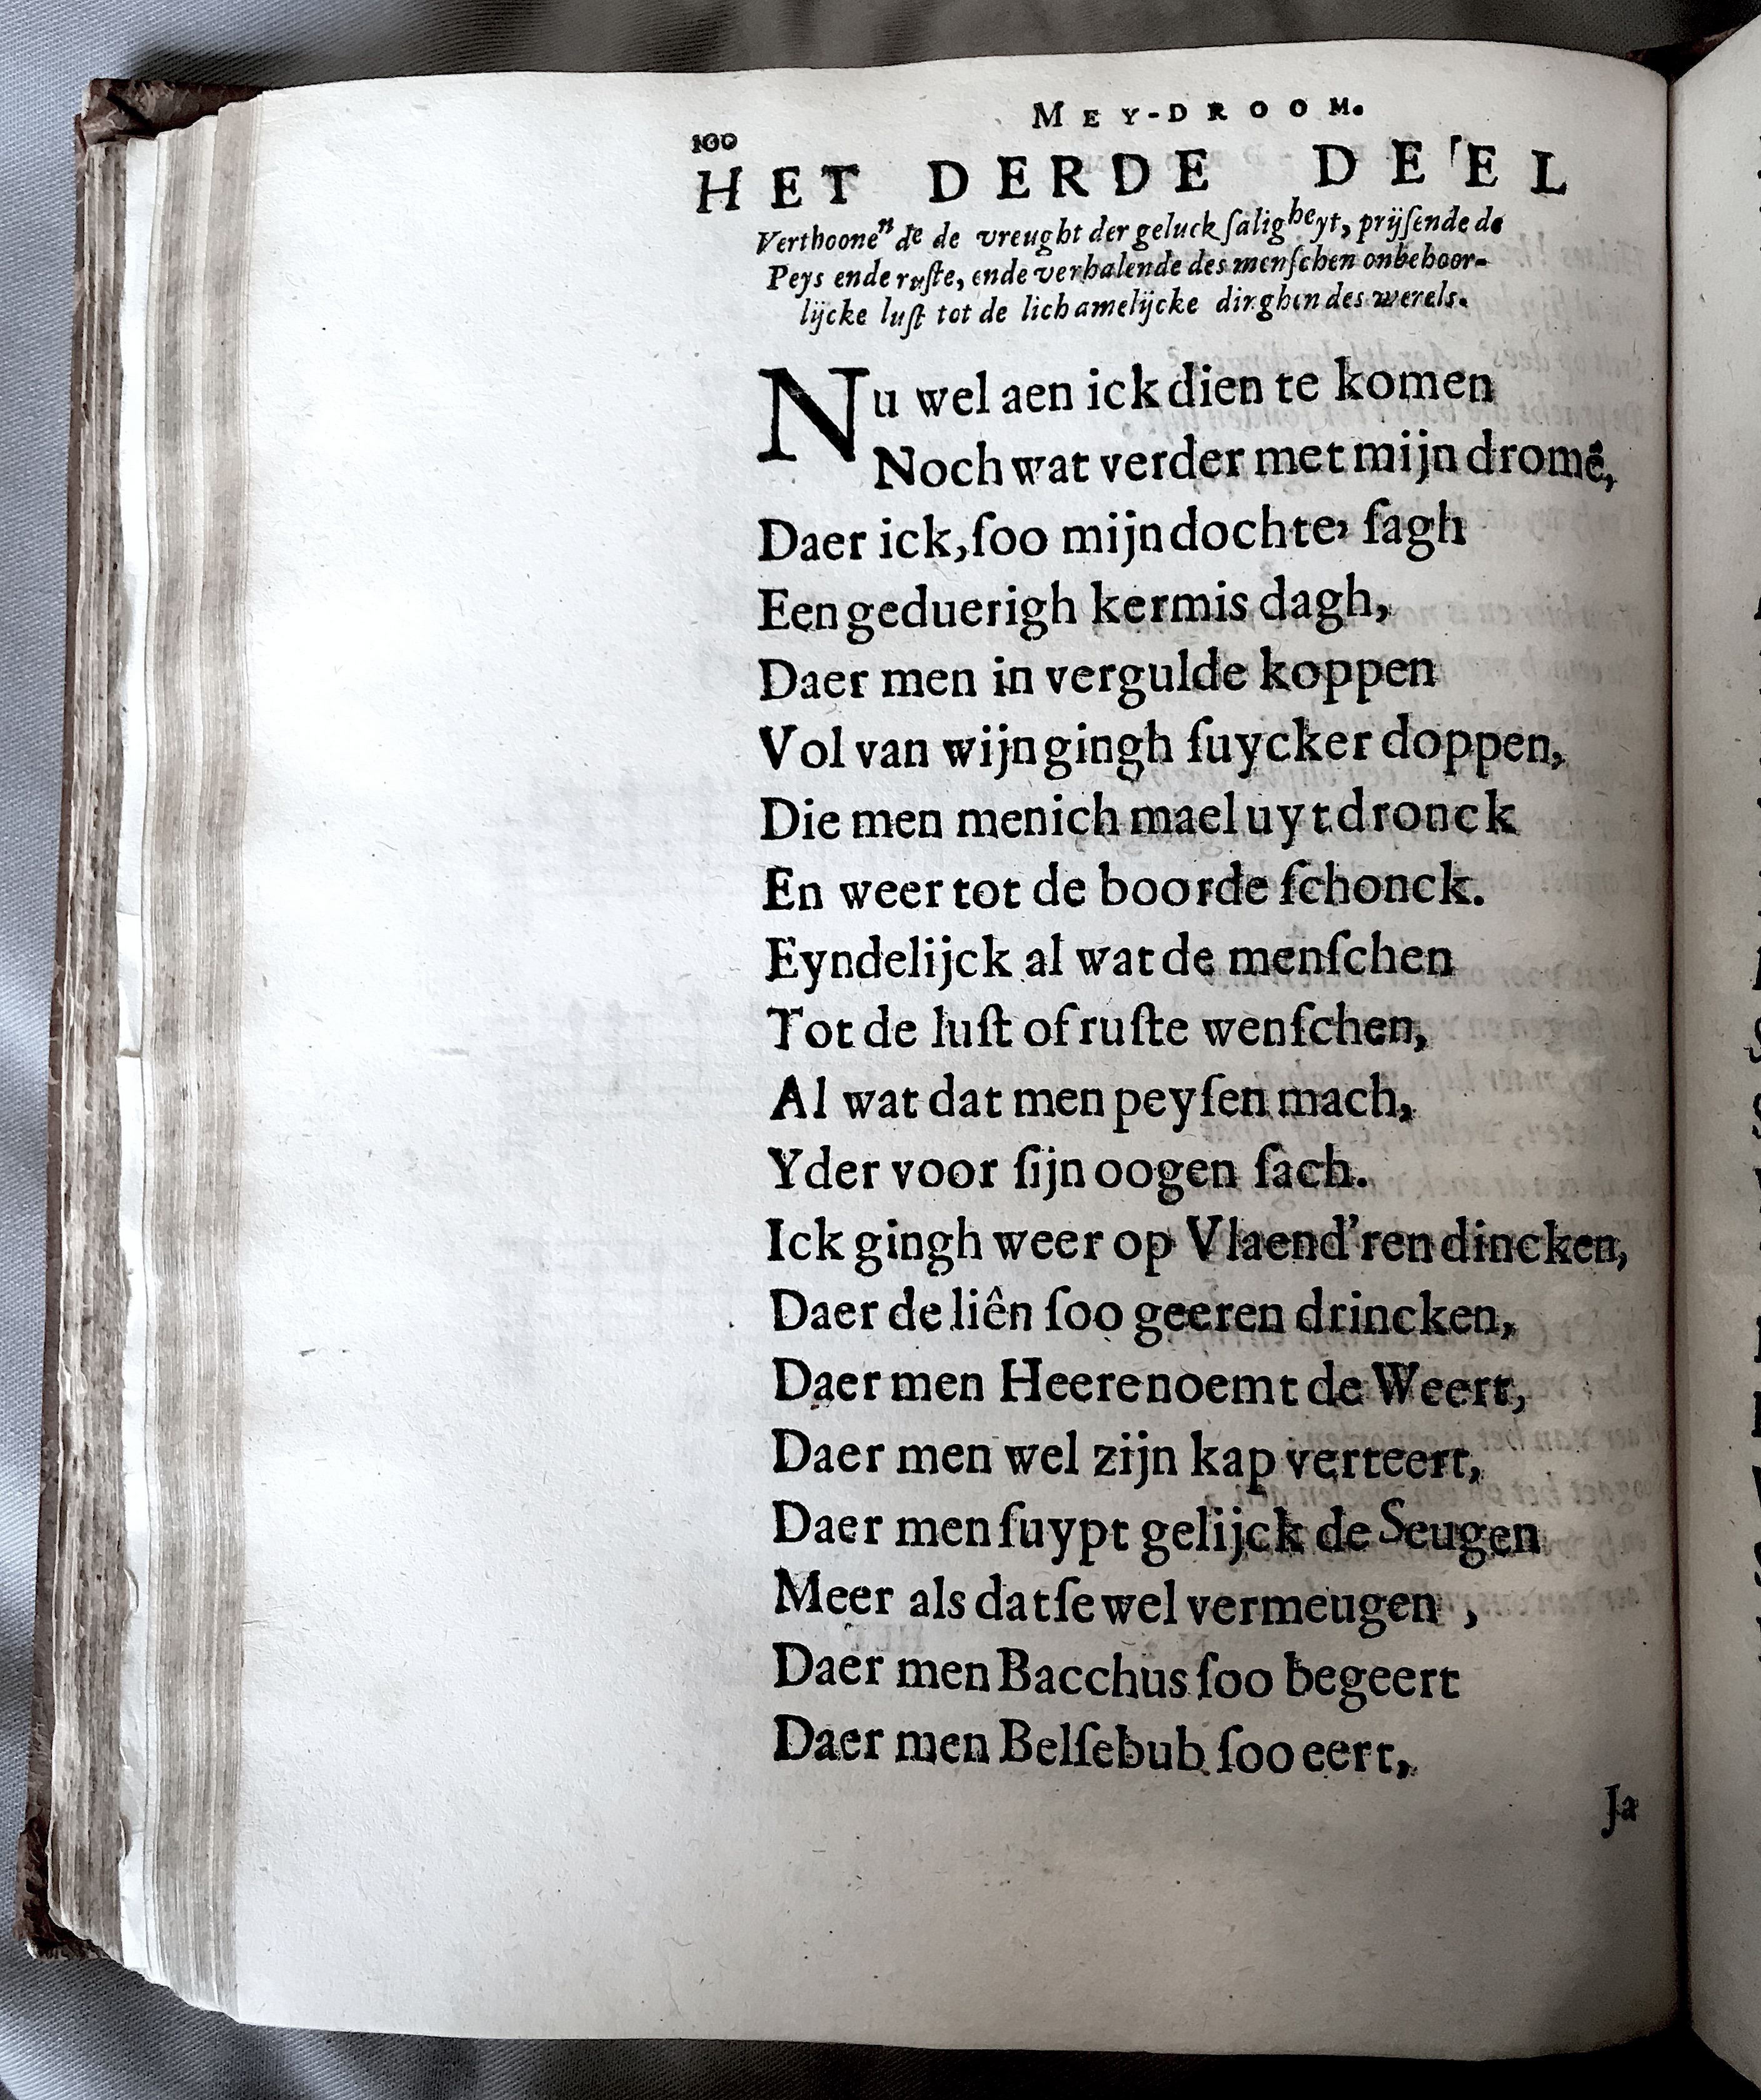 MEY-DROOM.
100
HET DERDE DEEL
Verthoonende de vreught der geluckſaligheyt, prijſende de
Peys ende ruſte, ende verhalende des menſchen onbehoor-
lijcke luſt tot de lichamelijcke dirghen des werels.
Nu wel aen ick dien te komen
Noch wat verder met mijn dromẽ,
Daer ick, ſoo mijn dochte, ſagh
Een geduerigh kermis dagh,
Daer men in vergulde koppen
Vol van wijn gingh ſuycker doppen,
Die men menich mael uyt dronck
En weer tot de boorde ſchonck.
Eyndelijck al wat de menſchen
Tot de luſt of ruſte wenſchen,
Al wat dat men peyſen mach,
Yder voor ſijn oogen ſach.
Ick gingh weer op Vlaend'ren dincken,
Daer de liên ſoo geeren drincken,
Daer men Heere noemt de Weert,
Daer men wel zijn kap verteert,
Daer men ſuypt gelijck de Seugen
Meer als datſe wel vermeugen ,
Daer men Bacchus ſoo begeert
Daer men Belſebub ſoo eert,
Ja